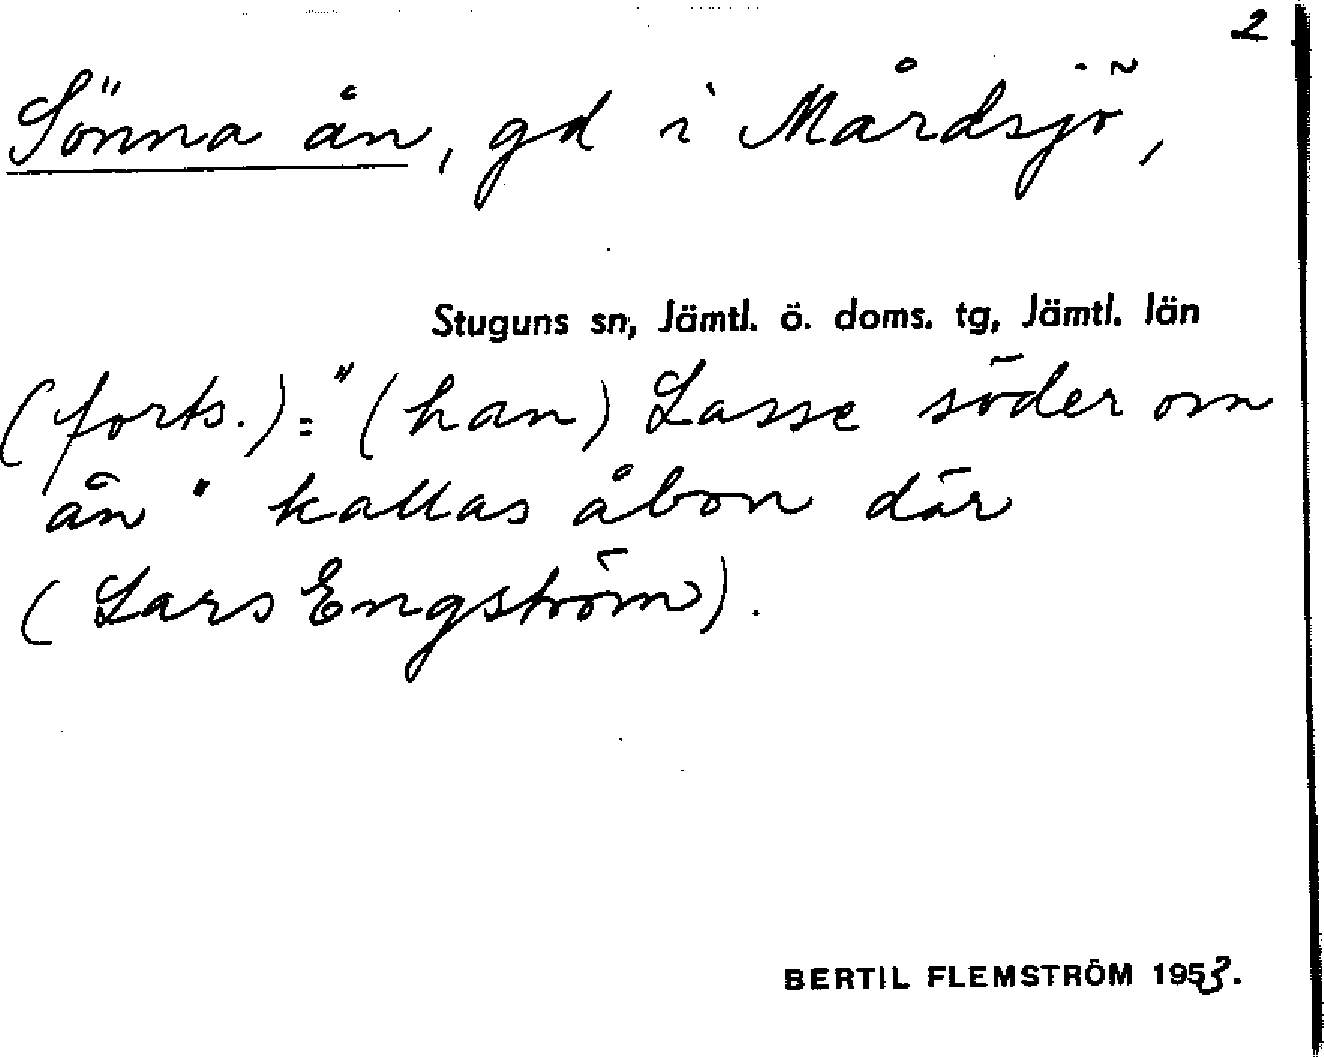 2
Sönna ån, gd i Mårdsjö,
Stuguns sn, Jämtl. ö. doms. tg, Jämtl. län
(forts.): "(han) Lasse söder om
ån" kallas åbon där
(Lars Engström).
BERTIL FLEMSTRÖM 1953.